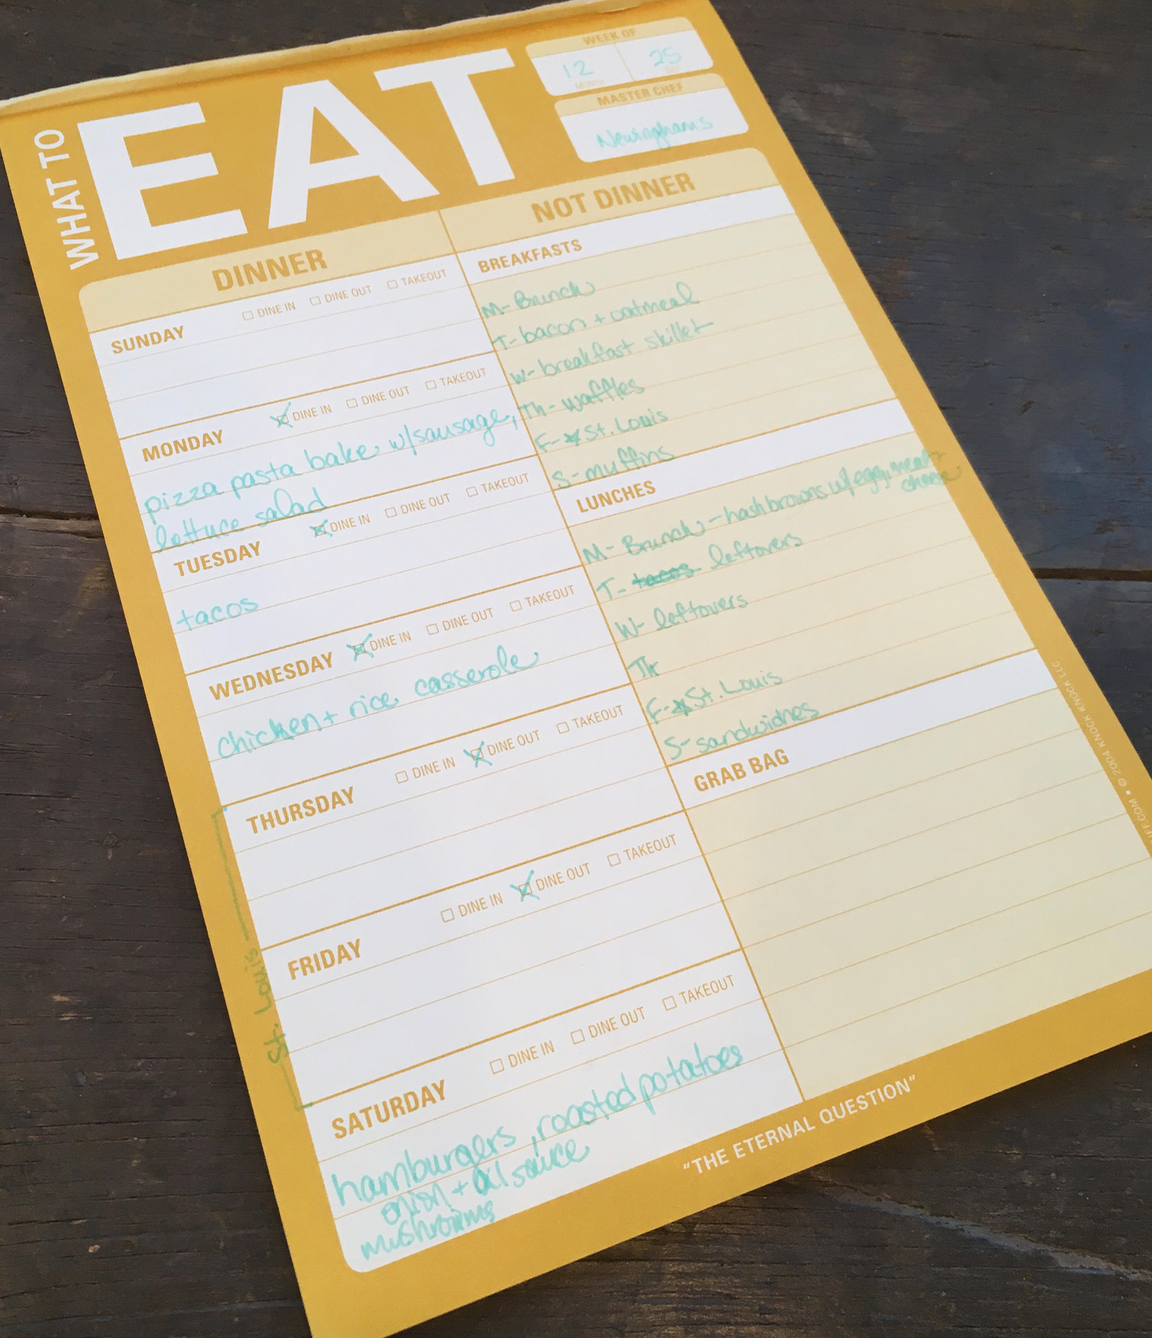 WHAT TO
EAT
WEEK OF
12 25
MONTH DAY
MASTER CHEF
Newinghams
DINNER
SUNDAY
DINE IN DINE OUT TAKEOUT
MONDAY
DINE IN DINE OUT TAKEOUT
pizza pasta bake w/sausage,
lettuce salad
TUESDAY
DINE IN DINE OUT TAKEOUT
tacos
WEDNESDAY
DINE IN DINE OUT TAKEOUT
chicken + rice casserole
THURSDAY
DINE IN DINE OUT TAKEOUT
St. Louis
FRIDAY
DINE IN DINE OUT TAKEOUT
SATURDAY
DINE IN DINE OUT TAKEOUT
hamburgers, roasted potatoes
onion + sauce
mushrooms
NOT DINNER
BREAKFASTS
M- Brunch
T- bacon + oatmeal
W- breakfast skillet
Th- waffles
F- St. Louis
S- muffins
LUNCHES
M- Brunch - hashbrowns w/egg, meat +
cheese
T- tacos leftovers
W- leftovers
Th
F- St. Louis
S- sandwiches
GRAB BAG
"THE ETERNAL QUESTION"
.COM • © 2004 KNOCK KNOCK LLC